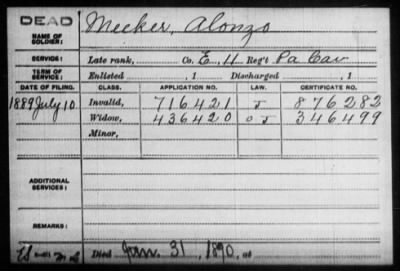 DEAD
NAME OF SOLDIER: Meeker, Alonzo
SERVICE: Late rank, Co. E, 11 Reg't Pa Cav
TERM OF SERVICE: Enlisted , 1 Discharged , 1
DATE OF FILING. CLASS. APPLICATION NO. LAW. CERTIFICATE NO.
1889 July 10 Invalid, 716421 J 876282
Widow, 436420 O J 346499
Minor,
ADDITIONAL SERVICES:
REMARKS:
Died Jan. 31, 1890, at